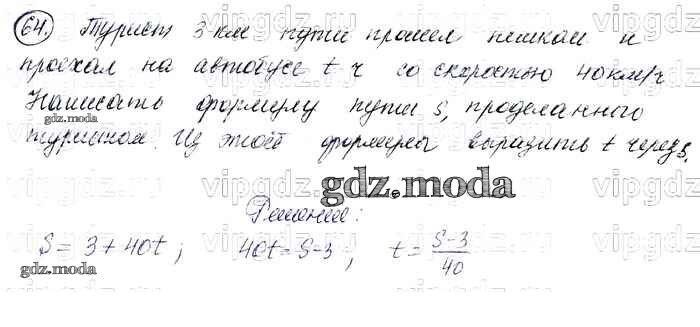 64. Турист 3 км пути прошел пешком и
проехал на автобусе t ч со скоростью 40 км/ч
Написать формулу пути S, проделанного
gdz.moda
туристом. Из этой формулы выразить t через S.
gdz.moda
Решение:
S = 3 + 40t ; 40t = S - 3 ; t = (S-3)/40
gdz.moda
vipgdz vipgdz vipgdz vipgdz